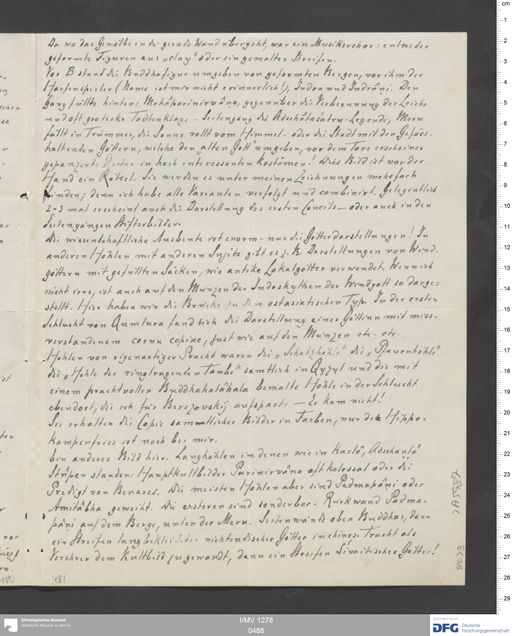 Da wo das Gewölbe in die gerade Wand übergeht, war ein Musikerchor: entweder
geformte Figuren aus „clay" oder ein gemalter Streifen.
Vor B stand die Buddhafigur umgeben von geformten Bergen, vor ihm der
Harfenspieler (Name ist mir nicht erinnerlich!), Indra und Indrânî. Den
Gang füllte hinten: Mahâparinirvâna, gegenüber die Verbrennung der Leiche
und oft groteske Todtenklage – Seitengang die Adschâtasatru-Legende, Meru
fällt in Trümmer, die Sonne rollt vom Himmel – oder die Stadt mit den Gefäss-
haltenden Göttern, welche den „alten Gott" umgeben, vor dem Tore erscheinen
gepanzerte Reiter in hoch interessanten Kostümen! Dies Bild ist vor der
Hand ein Rätsel. Sie werden es unter meinen Zeichnungen mehrfach
finden; denn ich habe alle Varianten verfolgt und combinirt. Gelegentlich
2-3 mal erscheint auch die Darstellung des ersten Concils – oder auch in den
Seitengängen Stifterbilder.
Die wissenschaftliche Ausbeute ist enorm – nur die Götterdarstellungen! In
anderen Höhlen mit anderen Sujets gibt es z. B. Darstellungen von Wind-
göttern mit gefüllten Säcken, wie antike Lokalgötter verwendet. Wenn ich
nicht irre, ist auch auf den Münzen der Indoskythen der Windgott so darge-
stellt. Hier haben wir die Brücke zu dem ostasiatischen Typ. In der ersten
Schlucht von Qumtura fand sich die Darstellung einer Göttinn mit miss-
verstandenem cornu copiae, just wie auf den Münzen etc. etc.
Höhlen von eigenartiger Pracht waren die „Schatzhöhle" die „Pfauenhöhle"
die „Höhle der ringtragenden Taube" sämtlich in Qyzyl und die mit
einem prachtvollen Buddha bemalte Höhle in der Schlucht
ebendort, die ich für Berezovskij aufsparte. – Er kam nicht!
Sie erhalten die Copie sammtlicher Bilder in Farben, nur der Hippo-
kampenfries ist noch bei mir.
Ein anderes Bild hier. Langhöhlen in denen wie in Karlî, Adschantâ
Stûpen standen: Hauptkultbilder Parinirvâna oft kolossal oder die
Predigt von Benares. Die meisten Höhlen aber sind Padmapâni oder
Amitâbha geweiht. Die ersteren sind sonderbar: Rückwand Padma-
pâni auf dem Berge, unter der Meru. Seitenwände oben Buddhas, dann
ein Streifen lang bekleideter nichtindischer Götter in chines. Tracht als
Verehrer dem Kultbild zugewandt, dann ein Streifen Sivaitischer Götter!
481
I/MV 1278
0488
Ethnologisches Museum
Staatliche Museen zu Berlin
DFG Deutsche
Forschungsgemeinschaft